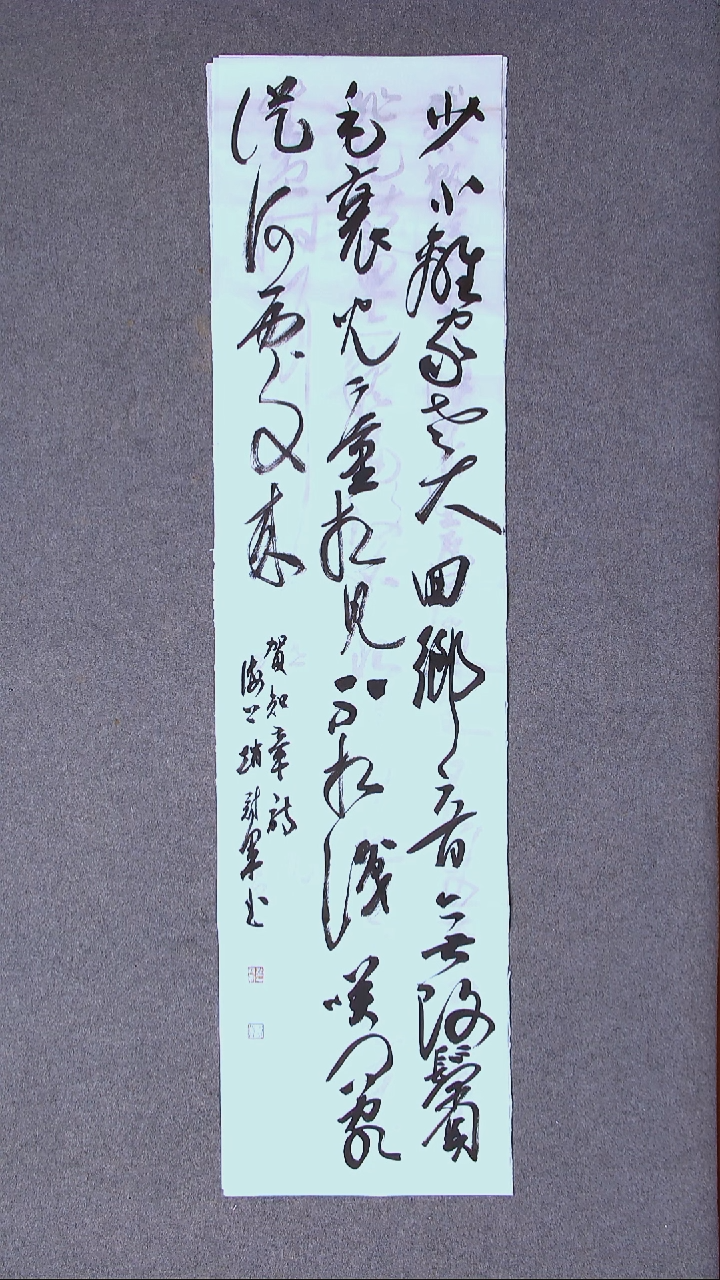 少小離家老大回鄉音無改鬢
毛衰兒童相見不相識咲問客
從何處來
賀知章詩
海上趙軍書